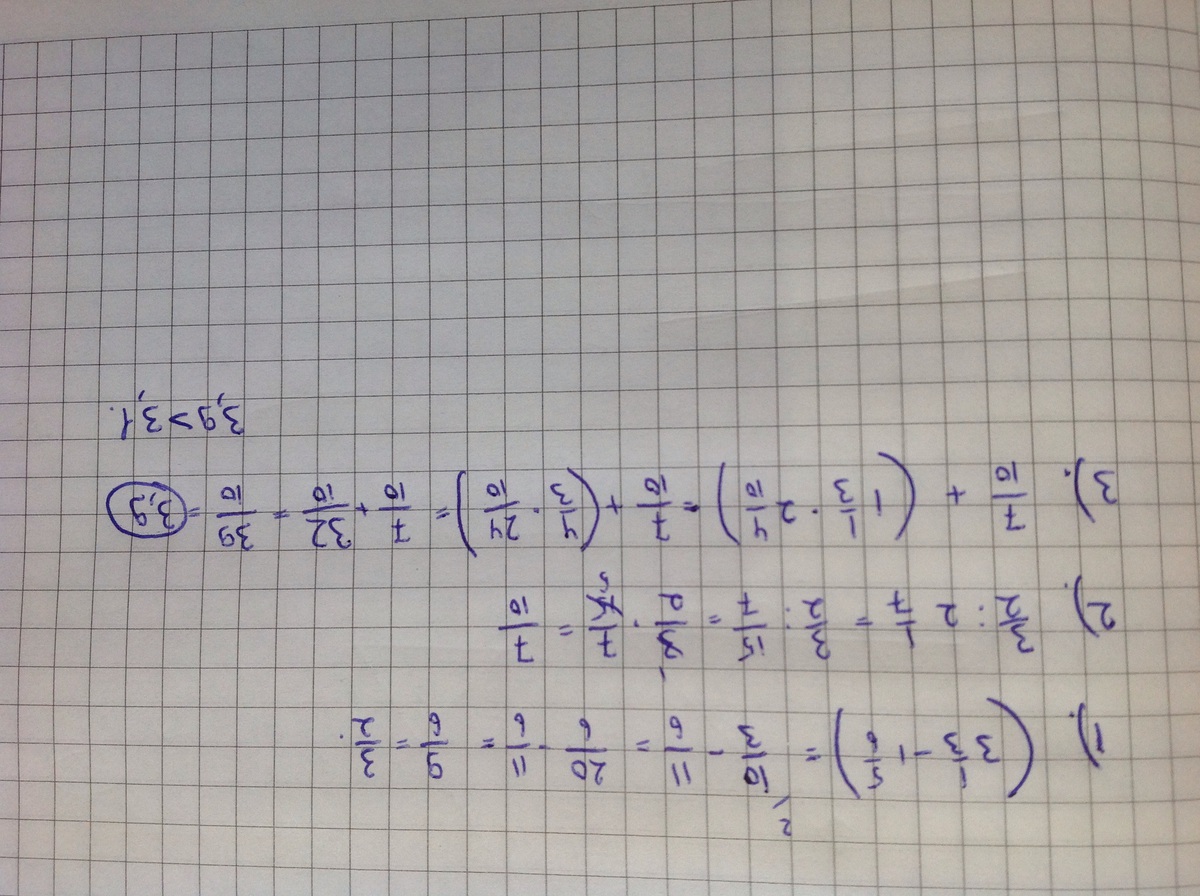 1). (3 1/3 - 1 5/6) = 10/3 - 11/6 = 20/6 - 11/6 = 9/6 = 3/2.
2). 3/2 : 2 1/7 = 3/2 : 15/7 = 3/2 · 7/15 = 7/10
3). 7/10 + (1 1/3 · 2 4/10) = 7/10 + (4/3 · 24/10) = 7/10 + 32/10 = 39/10 = 3,9
3,9 > 3,1.